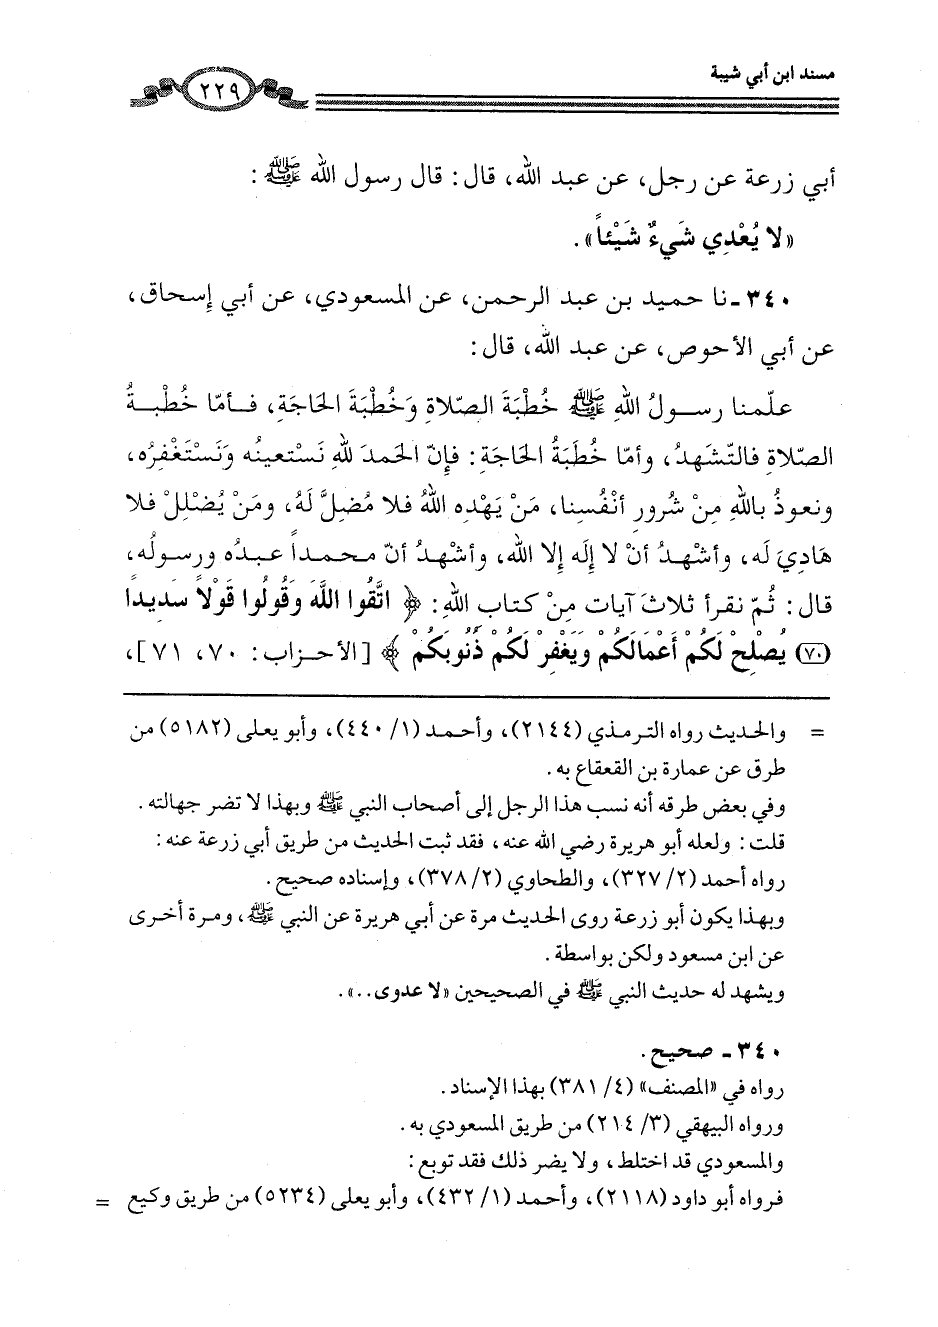 مسند ابن أبي شيبة
٢٢٩
أبي زرعة عن رجل، عن عبد الله، قال: قال رسول الله ﷺ:
«لا يُعْدِي شَيءٌ شَيْئاً».
٣٤٠ ـ نا حميد بن عبد الرحمن، عن المسعودي، عن أبي إسحاق،
عن أبي الأحوص، عن عبد الله، قال:
علّمنا رسولُ اللهِ ﷺ خُطْبَةَ الصّلاةِ وَخُطْبَةَ الحَاجَةِ، فأمّا خُطْبةُ
الصّلاةِ فالتّشهدُ، وأمّا خُطْبَةُ الحَاجَةِ: فإنّ الحمدَ للهِ نَسْتعينُه ونَسْتَغْفِرُه،
ونعوذُ باللهِ مِنْ شُرورِ أنْفُسِنا، مَنْ يَهْدِه اللهُ فلا مُضِلَّ لَهُ، ومَنْ يُضْلِلْ فلا
هَادِيَ لَه، وأشْهدُ أنْ لا إلَه إلا الله، وأشْهدُ أنّ محمداً عبدُه ورسولُه،
قال: ثُمّ نقرأ ثلاثَ آيات مِنْ كتاب اللهِ: ﴿ اتَّقُوا اللَّهَ وَقُولُوا قَوْلاً سَدِيداً
(٧٠) يُصْلِحْ لَكُمْ أَعْمَالَكُمْ وَيَغْفِرْ لَكُمْ ذُنُوبَكُمْ ﴾ [الأحزاب: ٧٠، ٧١]،
= والحديث رواه الترمذي (٢١٤٤)، وأحمد (١/ ٤٤٠)، وأبو يعلى (٥١٨٢) من
طرق عن عمارة بن القعقاع به.
وفي بعض طرقه أنه نسب هذا الرجل إلى أصحاب النبي ﷺ وبهذا لا تضر جهالته.
قلت: ولعله أبو هريرة رضي الله عنه، فقد ثبت الحديث من طريق أبي زرعة عنه:
رواه أحمد (٢/ ٣٢٧)، والطحاوي (٢/ ٣٧٨)، وإسناده صحيح.
وبهذا يكون أبو زرعة روى الحديث مرة عن أبي هريرة عن النبي ﷺ، ومرة أخرى
عن ابن مسعود ولكن بواسطة.
ويشهد له حديث النبي ﷺ في الصحيحين «لا عدوى..».
٣٤٠ ـ صحيح.
رواه في «المصنف» (٤/ ٣٨١) بهذا الإسناد.
ورواه البيهقي (٣/ ٢١٤) من طريق المسعودي به.
والمسعودي قد اختلط، ولا يضر ذلك فقد توبع:
فرواه أبو داود (٢١١٨)، وأحمد (١/ ٤٣٢)، وأبو يعلى (٥٢٣٤) من طريق وكيع =